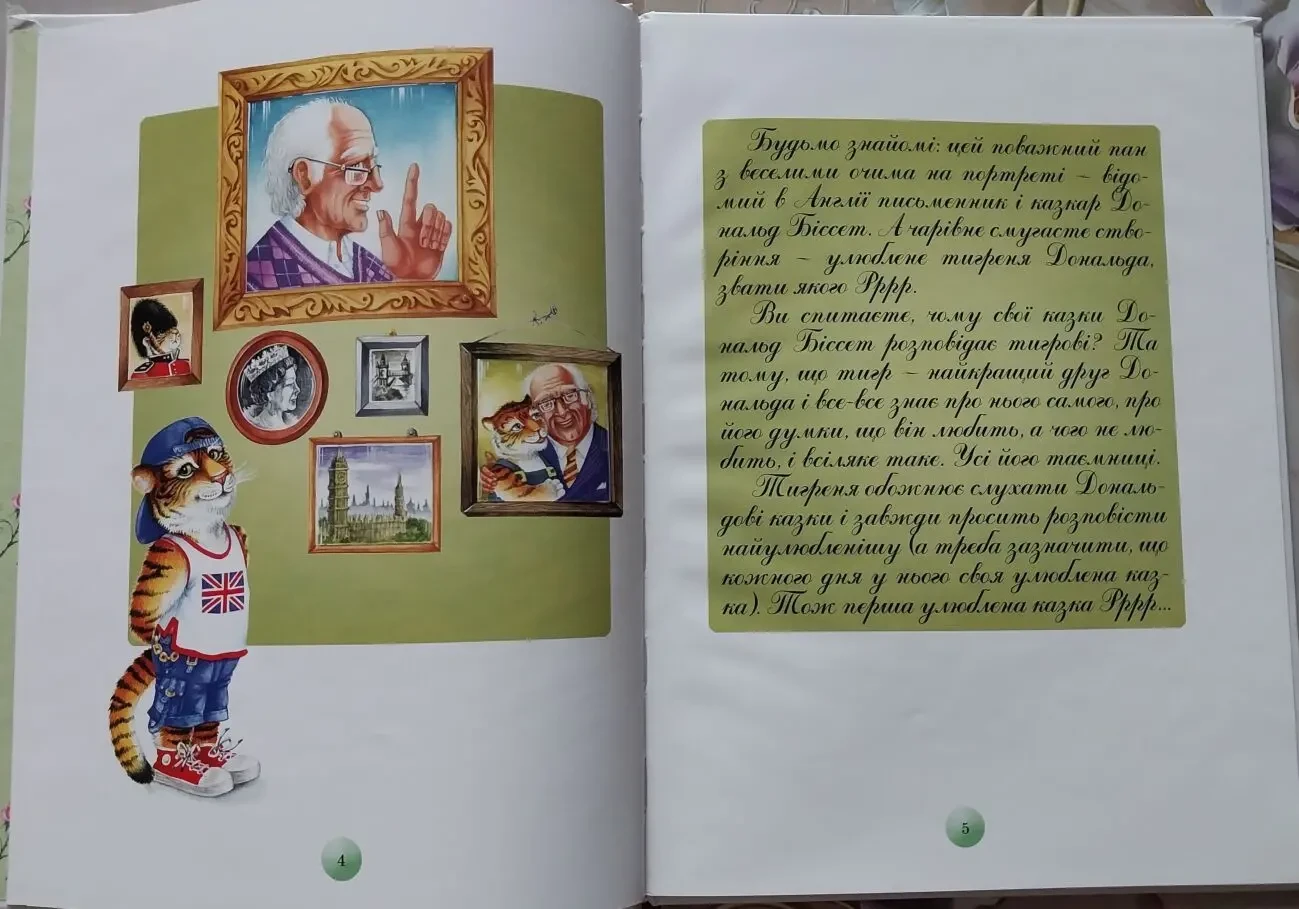 4
Будьмо знайомі: цей поважний пан
з веселими очима на портреті – відо-
мий в Англії письменник і казкар До-
нальд Біссет. А чарівне смугасте ство-
ріння – улюблене тигреня Дональда,
звати якого Рррр.
Ви спитаєте, чому свої казки До-
нальд Біссет розповідає тигрові? Та
тому, що тигр – найкращий друг До-
нальда і все-все знає про нього самого, про
його думки, що він любить, а чого не лю-
бить, і всіляке таке. Усі його таємниці.
Тигреня обожнює слухати Дональ-
дові казки і завжди просить розповісти
найулюбленішу (а треба зазначити, що
кожного дня у нього своя улюблена каз-
ка). Тож перша улюблена казка Рррр...
5